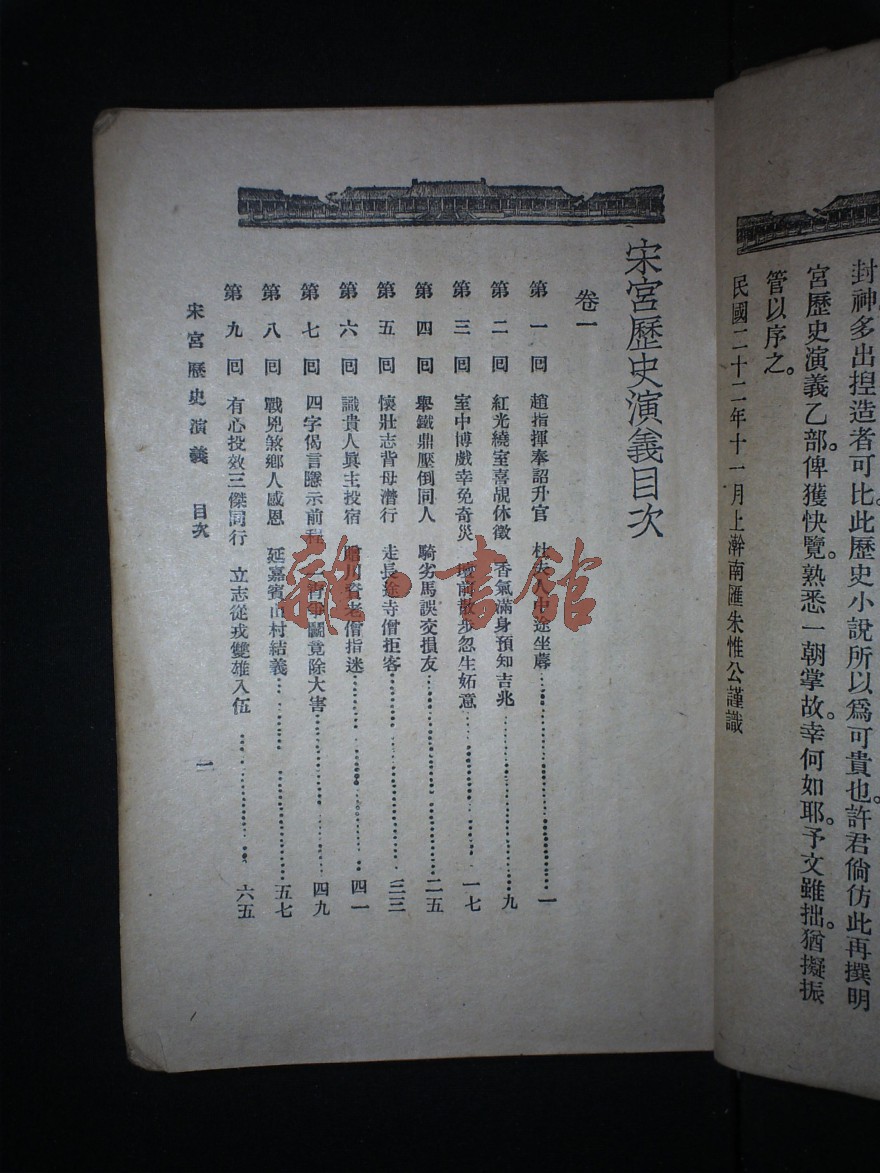 封神多出揑造者可比。此歷史小說所以爲可貴也。許君倘仿此再撰明
宮歷史演義乙部。俾獲快覽。熟悉一朝掌故。幸何如耶。予文雖拙。猶擬振
管以序之。
民國二十二年十一月上澣南匯朱惟公謹識
宋宮歷史演義目次
卷一
第一回 趙指揮奉詔升官 杜夫人中途坐蓐 一
第二回 紅光繞室喜覘休徵 香氣滿身預知吉兆 九
第三回 室中博戲幸免奇災 前散步忽生妬意 一七
第四回 舉鐵鼎壓倒同人 騎劣馬誤交損友 二五
第五回 懷壯志背母潛行 走長途寺僧拒客 三三
第六回 識貴人眞主投宿 贈川資老僧指迷 四一
第七回 四字偈言隱示前程 鬭竟除大害 四九
第八回 戰兇煞鄉人感恩 延嘉賓山村結義 五七
第九回 有心投效三傑同行 立志從戎雙雄入伍 六五
宋宮歷史演義 目次 一
雜·書館